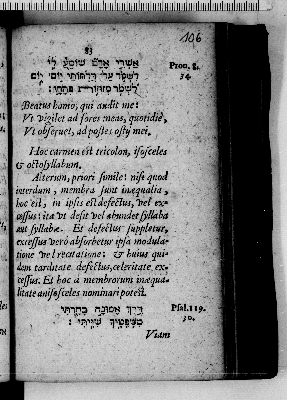 83
106
אשרי אדם שומע לי
לשקד על דלתותי יום יום
לשמר מזוזות פתחי:
Prou. 8.
34.
Beatus homo, qui audit me:
Vt vigilet ad fores meas, quotidie,
Vt obseruet, ad postes ostij mei.
Hoc carmen est tricolon, isosceles
& octosyllabum.
Alterum, priori simile: nisi quod
interdum, membra sunt inæqualia,
hoc est, in ipsis est defectus, vel ex-
cessus: ita vt desit vel abundet syllaba
aut syllabæ. Et defectus suppletur,
excessus verò absorbetur ipsa modula-
tione vel recitatione: & huius qui-
dem tarditate defectus, celeritate ex-
cessus. Et hoc à membrorum inæqua-
litate anisosceles nominari potest.
דרך אמונה בחרתי
משפטיך שויתי:
Psal. 119.
30.
Viam